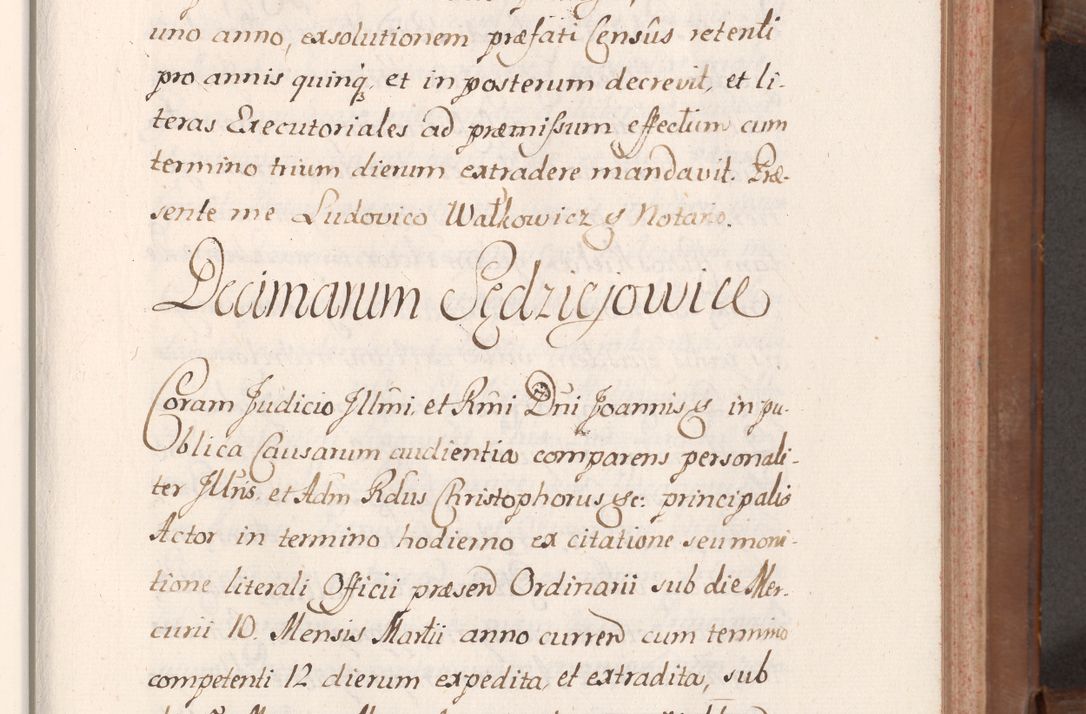 uno anno, exsolutionem præfati Censûs retenti
pro annis quinq, et in posterum decrevit, et li-
teras Executoriales ad præmissum effectum cum
termino trium dierum extradere mandavit. Præ-
sente me Ludovico Wałkowicz & Notario.
Decimarum Pędziejowice
Coram Judicio Illmi, et Rmi Dni Joannis & in pu-
blica Causarum audientia comparens personali-
ter Illris, et Adm Rdus Christophorus &c: principalis
Actor in termino hodierno ex citatione seu moni-
tione literali Officii præsend Ordinarii sub die Mer-
curii 10. Mensis Martii anno currend cum termino
competenti 12 dierum expedita, et extradita, sub